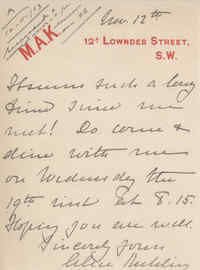 Nov 12th
M.A.K.
12ᴬ LOWNDES STREET,
S.W.
It seems such a long
time since we
met! Do come &
dine with me
on Wednesday the
19th inst at 8.15.
Hoping you are well
Sincerely yours